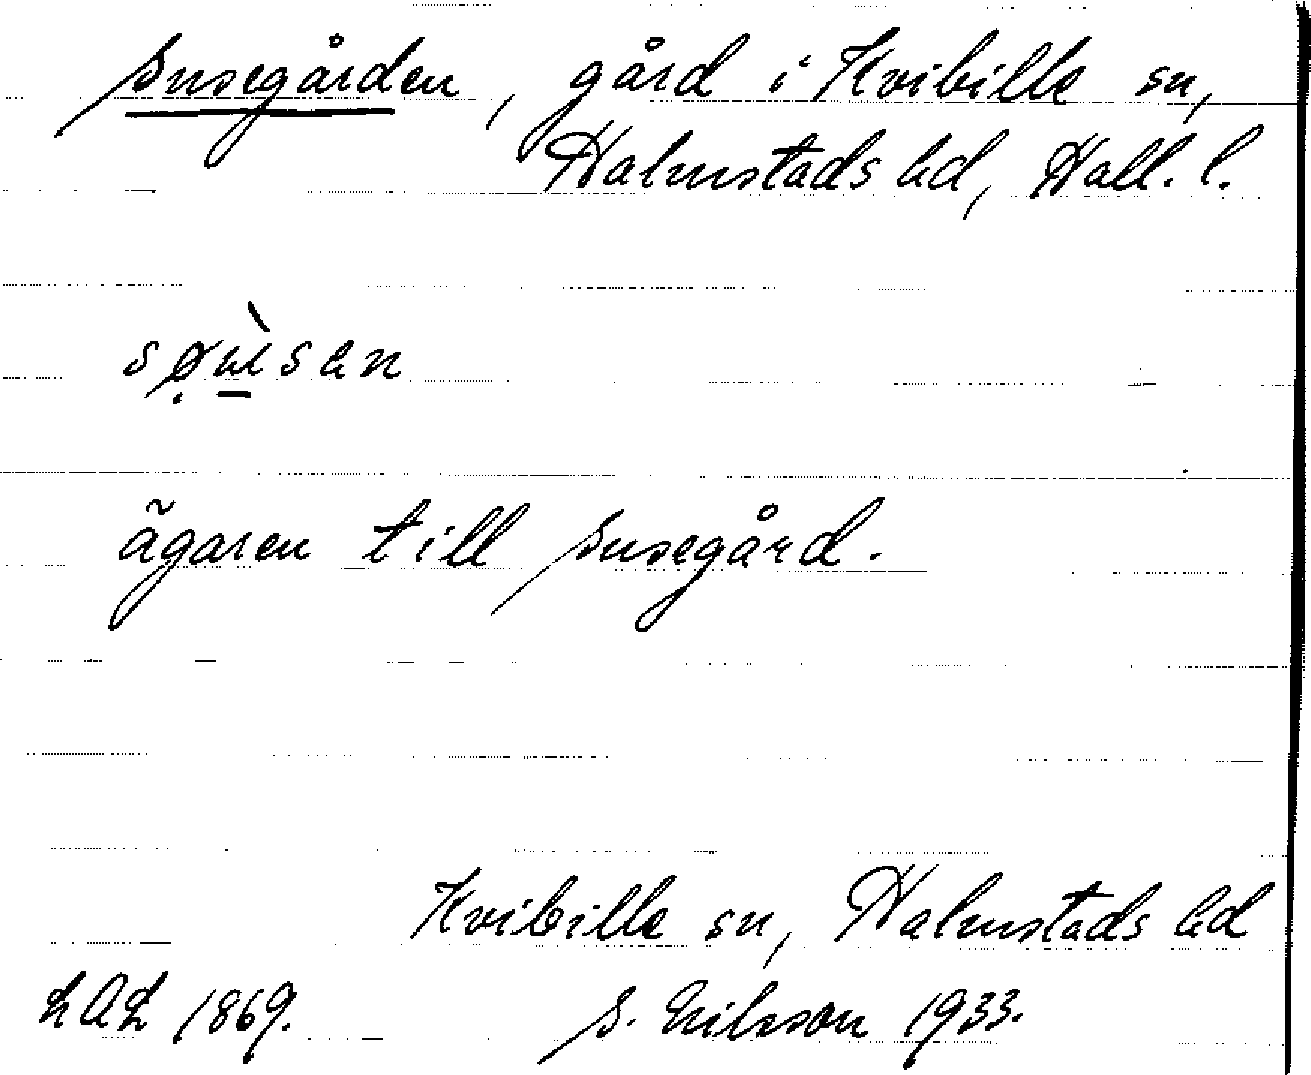 Susegården, gård i Kvibille sn,
Halmstads hd, Hall. l.
sø̣ẁsan
ägaren till Susegård.
Kvibille sn, Halmstads hd
LAL 1869. S. Nilsson 1933.